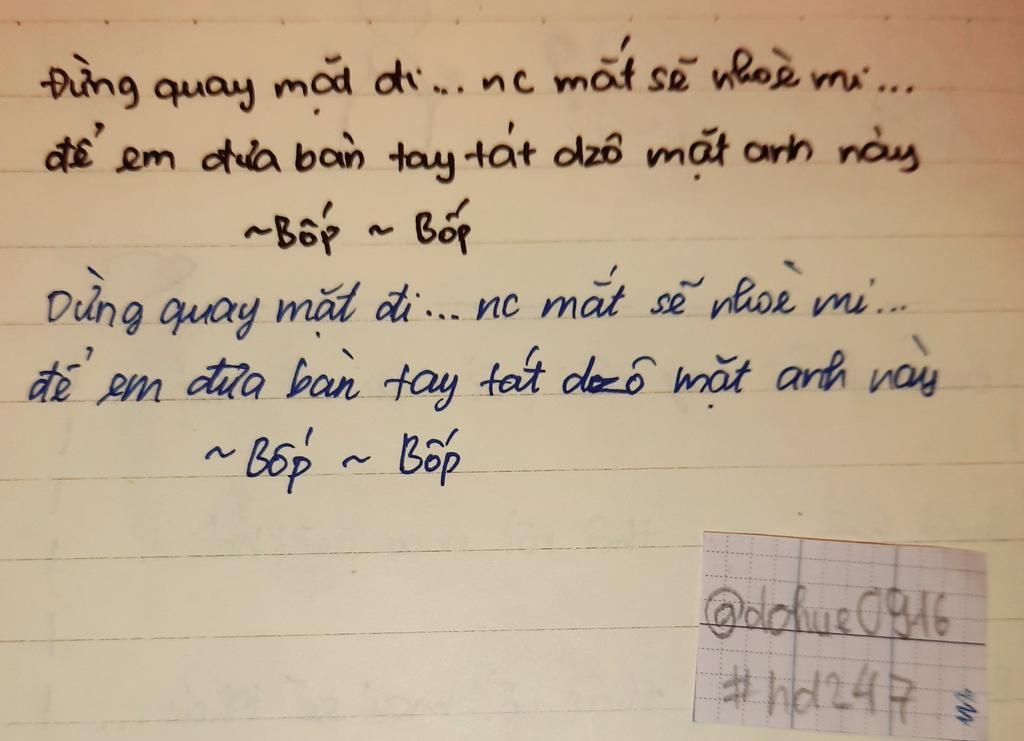 Đừng quay mặt đi... nc mắt sẽ nhoè mi...
để em đưa bàn tay tát dzô mặt anh này
~Bốp ~ Bốp
Đừng quay mặt đi... nc mắt sẽ nhoè mi...
để em đưa bàn tay tát dzô mặt anh này
~ Bốp ~ Bốp
@dohue0916
#hd247